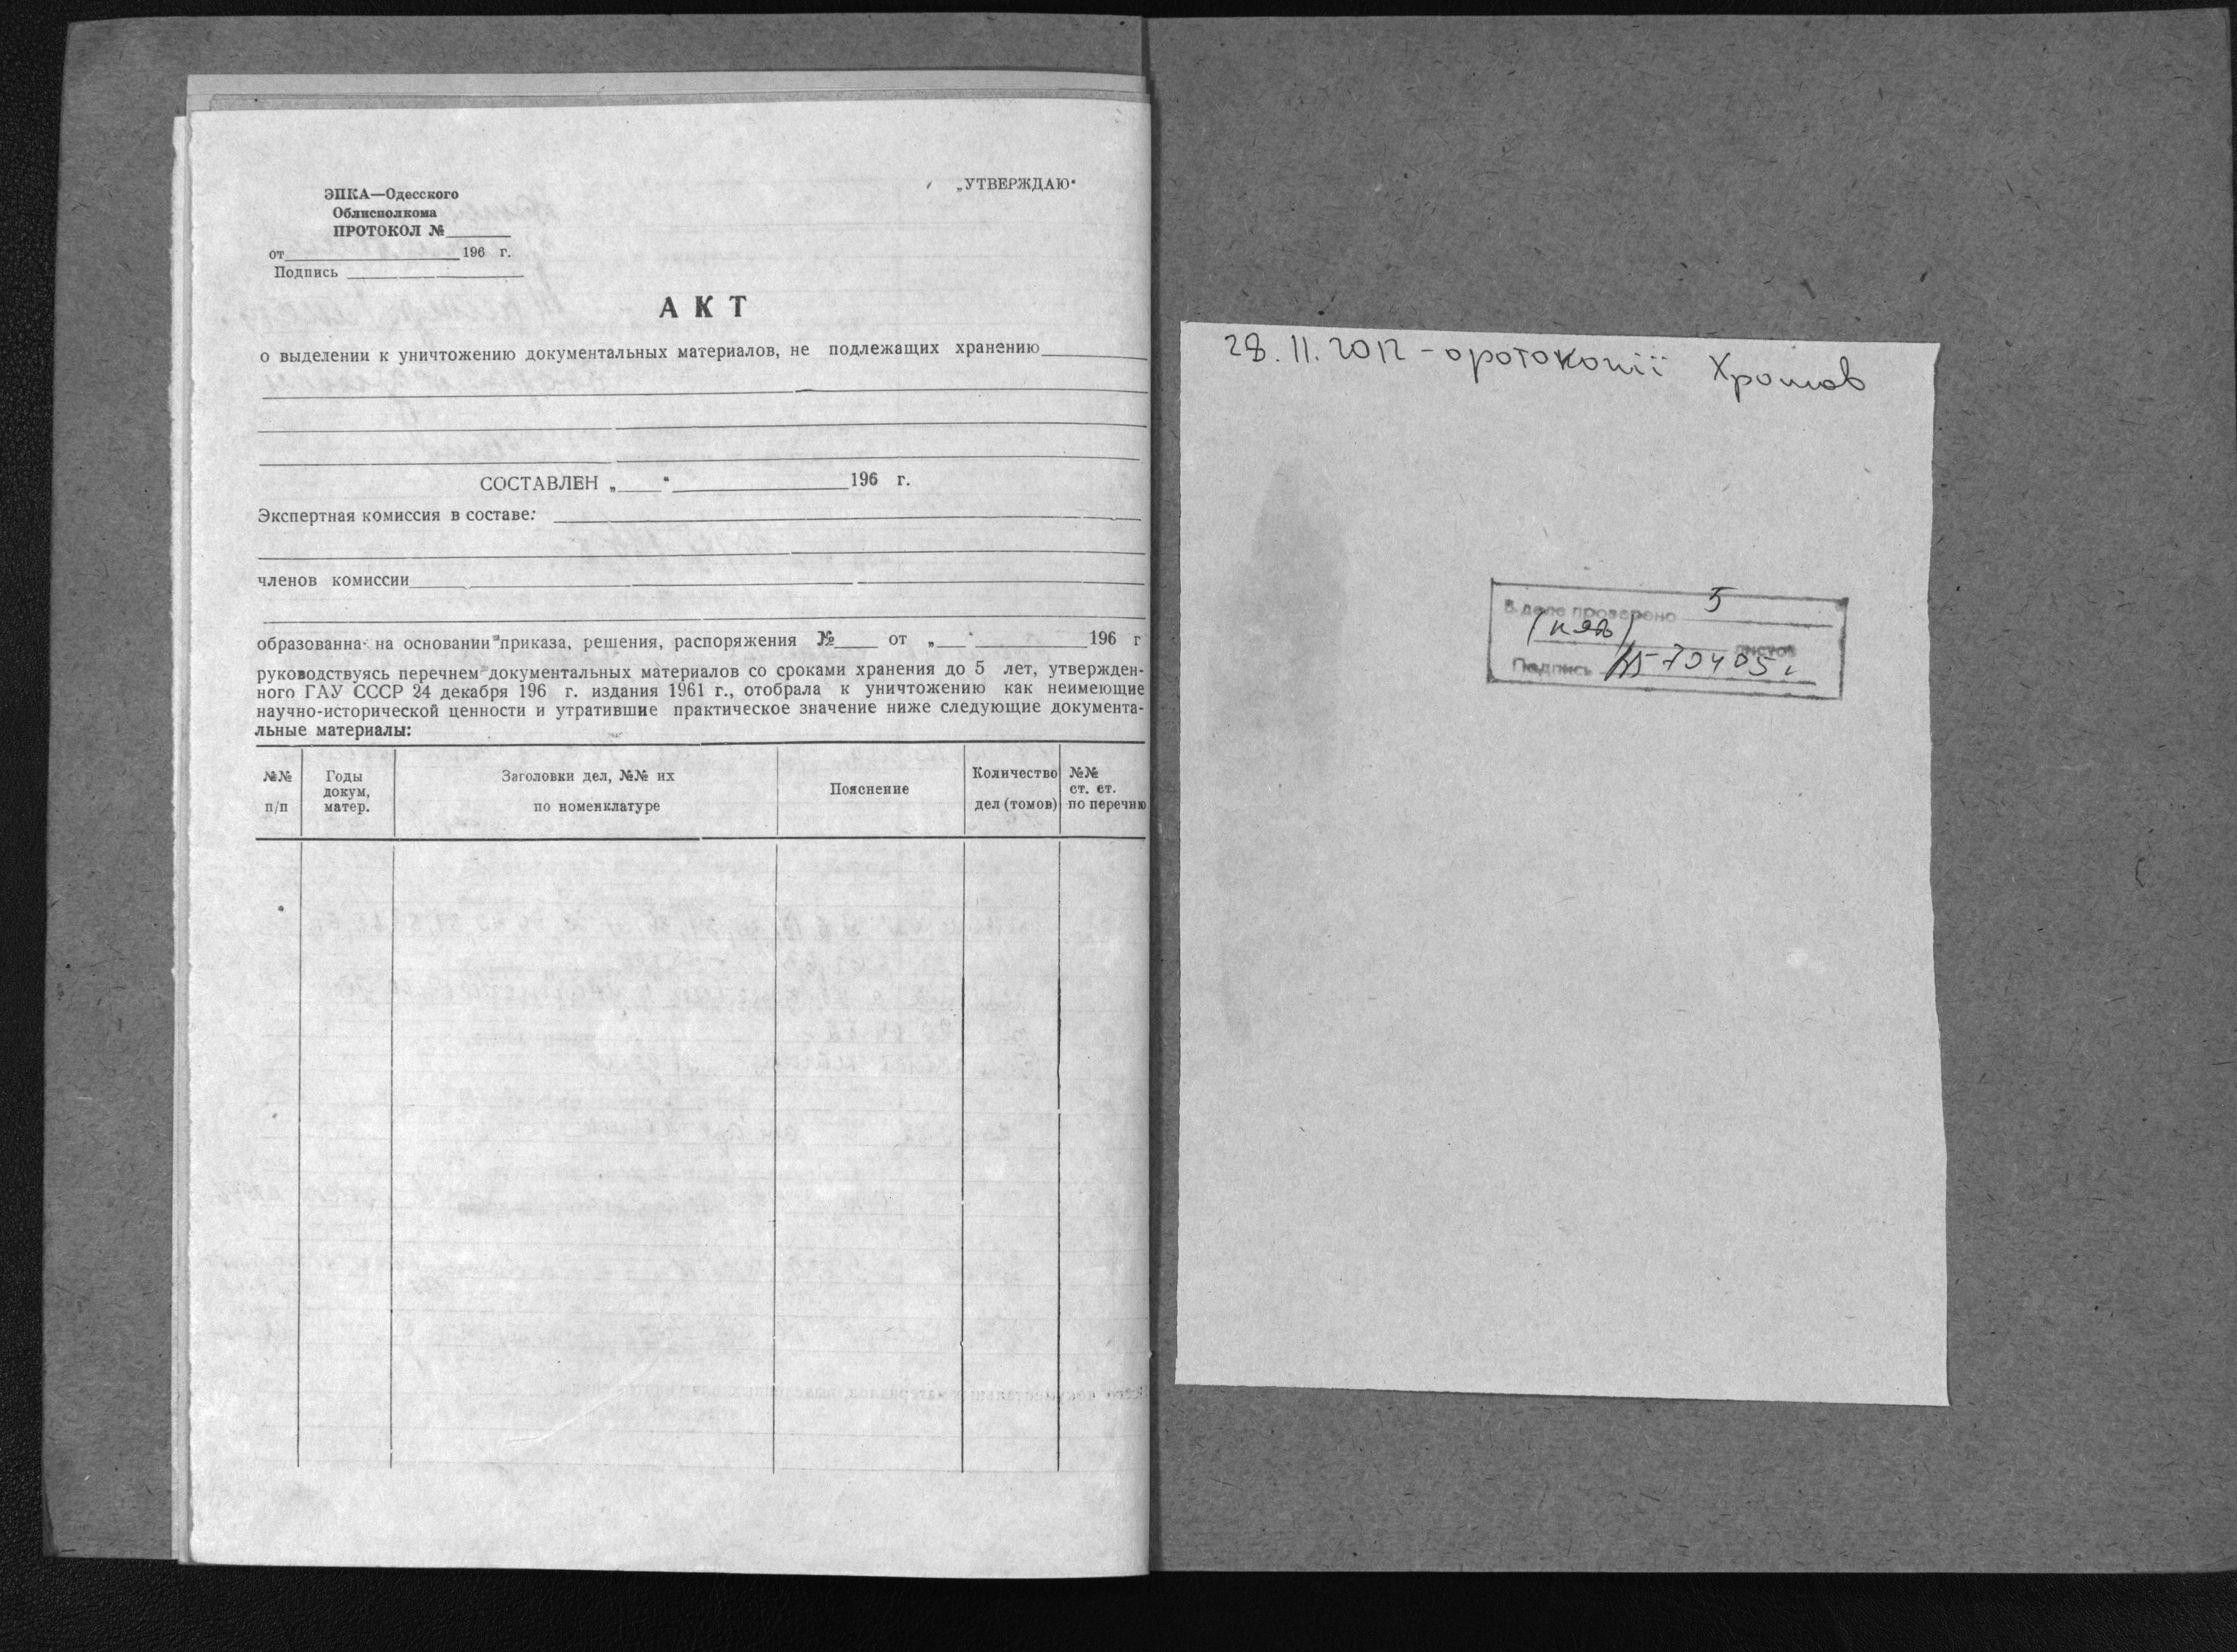 ЭПКА—Одесского
Облисполкома
ПРОТОКОЛ №
от 196 г.
Подпись
„УТВЕРЖДАЮ“
АКТ
о выделении к уничтожению документальных материалов, не подлежащих хранению
СОСТАВЛЕН „ “ 196 г.
Экспертная комиссия в составе:
членов комиссии
образованна на основании приказа, решения, распоряжения № от „ “ 196 г
руководствуясь перечнем документальных материалов со сроками хранения до 5 лет, утвержден-
ного ГАУ СССР 24 декабря 196 г. издания 1961 г., отобрала к уничтожению как неимеющие
научно-исторической ценности и утратившие практическое значение ниже следующие документа-
льные материалы:
№№ п/п
Годы докум, матер.
Заголовки дел, №№ их по номенклатуре
Пояснение
Количество дел (томов)
№№ ст. ст. по перечню
28.11.2012 - фотокопії
В деле проверено 5
(пять) листов
Подпись